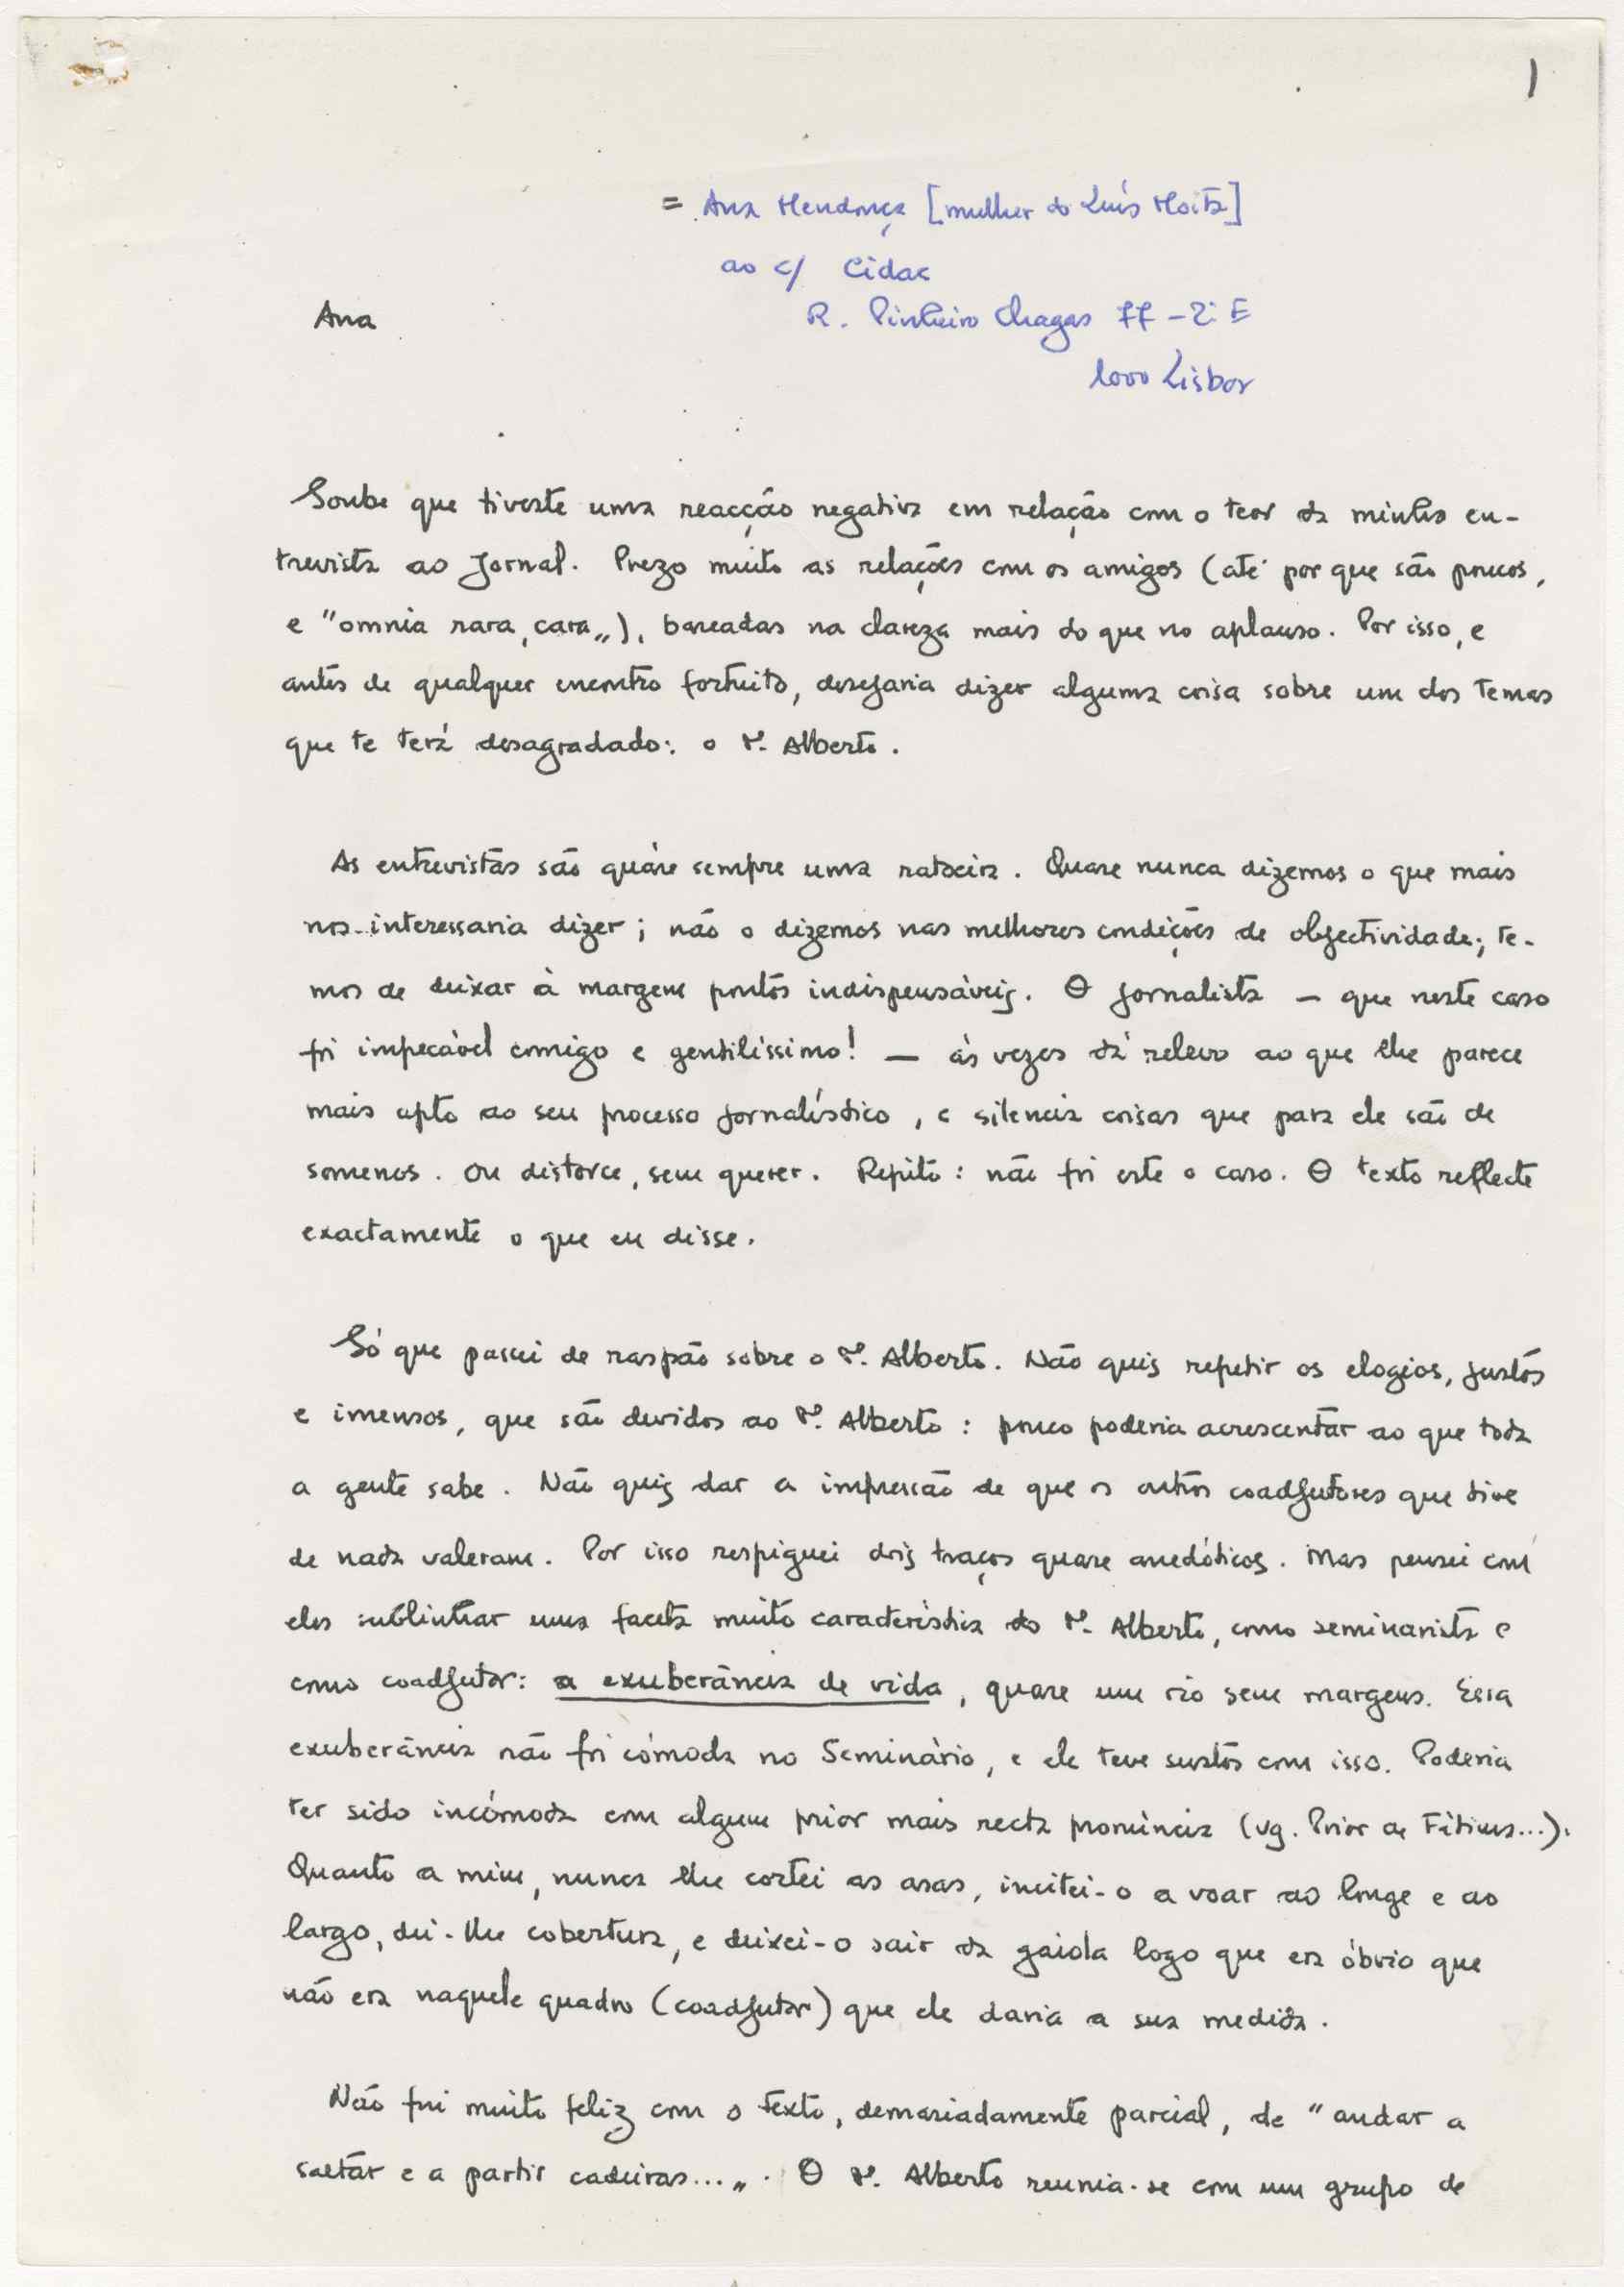 1
= Ana Mendonça [mulher do Luís Moita]
ao c/ Cidac
Ana
R. Pinheiro Chagas 77 - 2º E
1000 Lisboa
Soube que tiveste uma reacção negativa em relação com o teor da minha en-
trevista ao Jornal. Prezo muito as relações com os amigos (até por que são poucos,
e "omnia rara, cara„), baseadas na clareza mais do que no aplauso. Por isso, e
antes de qualquer encontro fortuito, desejaria dizer alguma coisa sobre um dos temas
que te terá desagradado: o P. Alberto.
As entrevistas são quáse sempre uma ratoeira. Quase nunca dizemos o que mais
nos interessaria dizer; não o dizemos nas melhores condições de objectividade; te-
mos de deixar à margem pontos indispensáveis. O jornalista — que neste caso
foi impecável comigo e gentilíssimo! — às vezes dá relevo ao que lhe parece
mais apto ao seu processo jornalístico, e silencia coisas que para ele são de
somenos. Ou distorce, sem querer. Repito: não foi este o caso. O texto reflecte
exactamente o que eu disse.
Só que passei de raspão sobre o P. Alberto. Não quis repetir os elogios, justos
e imensos, que são devidos ao P. Alberto: pouco poderia acrescentar ao que toda
a gente sabe. Não quis dar a impressão de que os outros coadjutores que tive
de nada valeram. Por isso respiguei dois traços quase anedóticos. Mas pensei com
eles sublinhar uma faceta muito característica do P. Alberto, como seminarista e
como coadjutor: a exuberância de vida, quase um rio sem margens. Essa
exuberância não foi cómoda no Seminário, e ele teve sustos com isso. Poderia
ter sido incómoda com algum prior mais recta pronúncia (vg. Prior de Fátima...).
Quanto a mim, nunca lhe cortei as asas, incitei-o a voar ao longe e ao
largo, dei-lhe cobertura, e deixei-o sair da gaiola logo que era óbvio que
não era naquele quadro (coadjutor) que ele daria a sua medida.
Não fui muito feliz com o texto, demasiadamente parcial, de "andar a
saltar e a partir cadeiras...„. O P. Alberto reunia-se com um grupo de